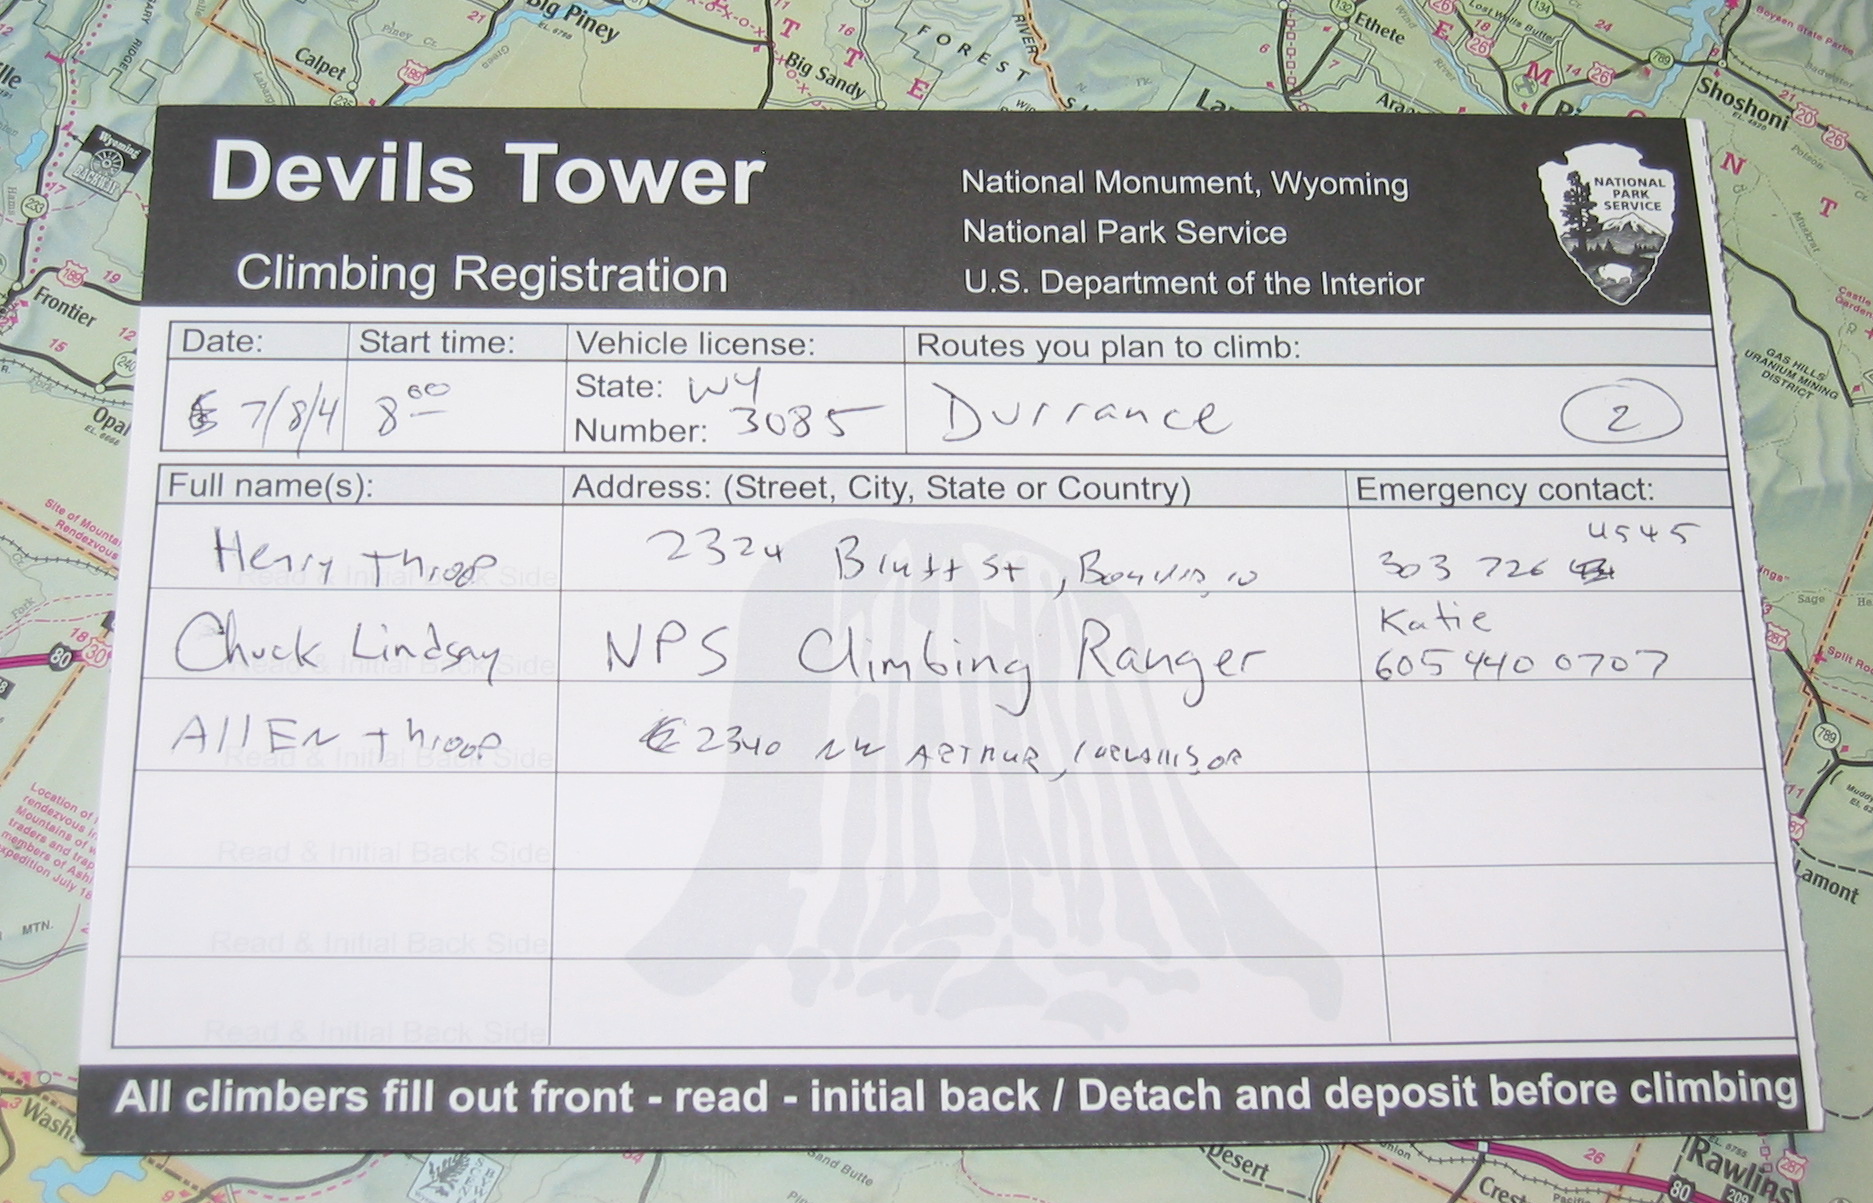 Devils Tower
Climbing Registration
National Monument, Wyoming
National Park Service
U.S. Department of the Interior
NATIONAL
PARK
SERVICE
Date: Start time: Vehicle license: Routes you plan to climb:
7/8/4 8 00 State: WY Durrance 2
Number: 3085
Full name(s): Address: (Street, City, State or Country) Emergency contact:
Henry Throop 2324 Bluff St, 303 726 4545
Chuck Lindsay NPS Climbing Ranger Katie
605 440 0707
AllEN Throop 2340 NW ARTHUR, OR
Read & Initial Back Side
Read & Initial Back Side
Read & Initial Back Side
Read & Initial Back Side
Read & Initial Back Side
Read & Initial Back Side
All climbers fill out front - read - initial back / Detach and deposit before climbing
Big Piney
Calpet
Big Sandy
FOREST
RIVER
Ethete
Shoshoni
Wyoming
BACKWAY
RIDGE
Frontier
Opal
GAS HILLS
URANIUM MINING
DISTRICT
Site of Mountain
Rendezvous
Lamont
MTN.
Desert
Sand Butte
Rawlins